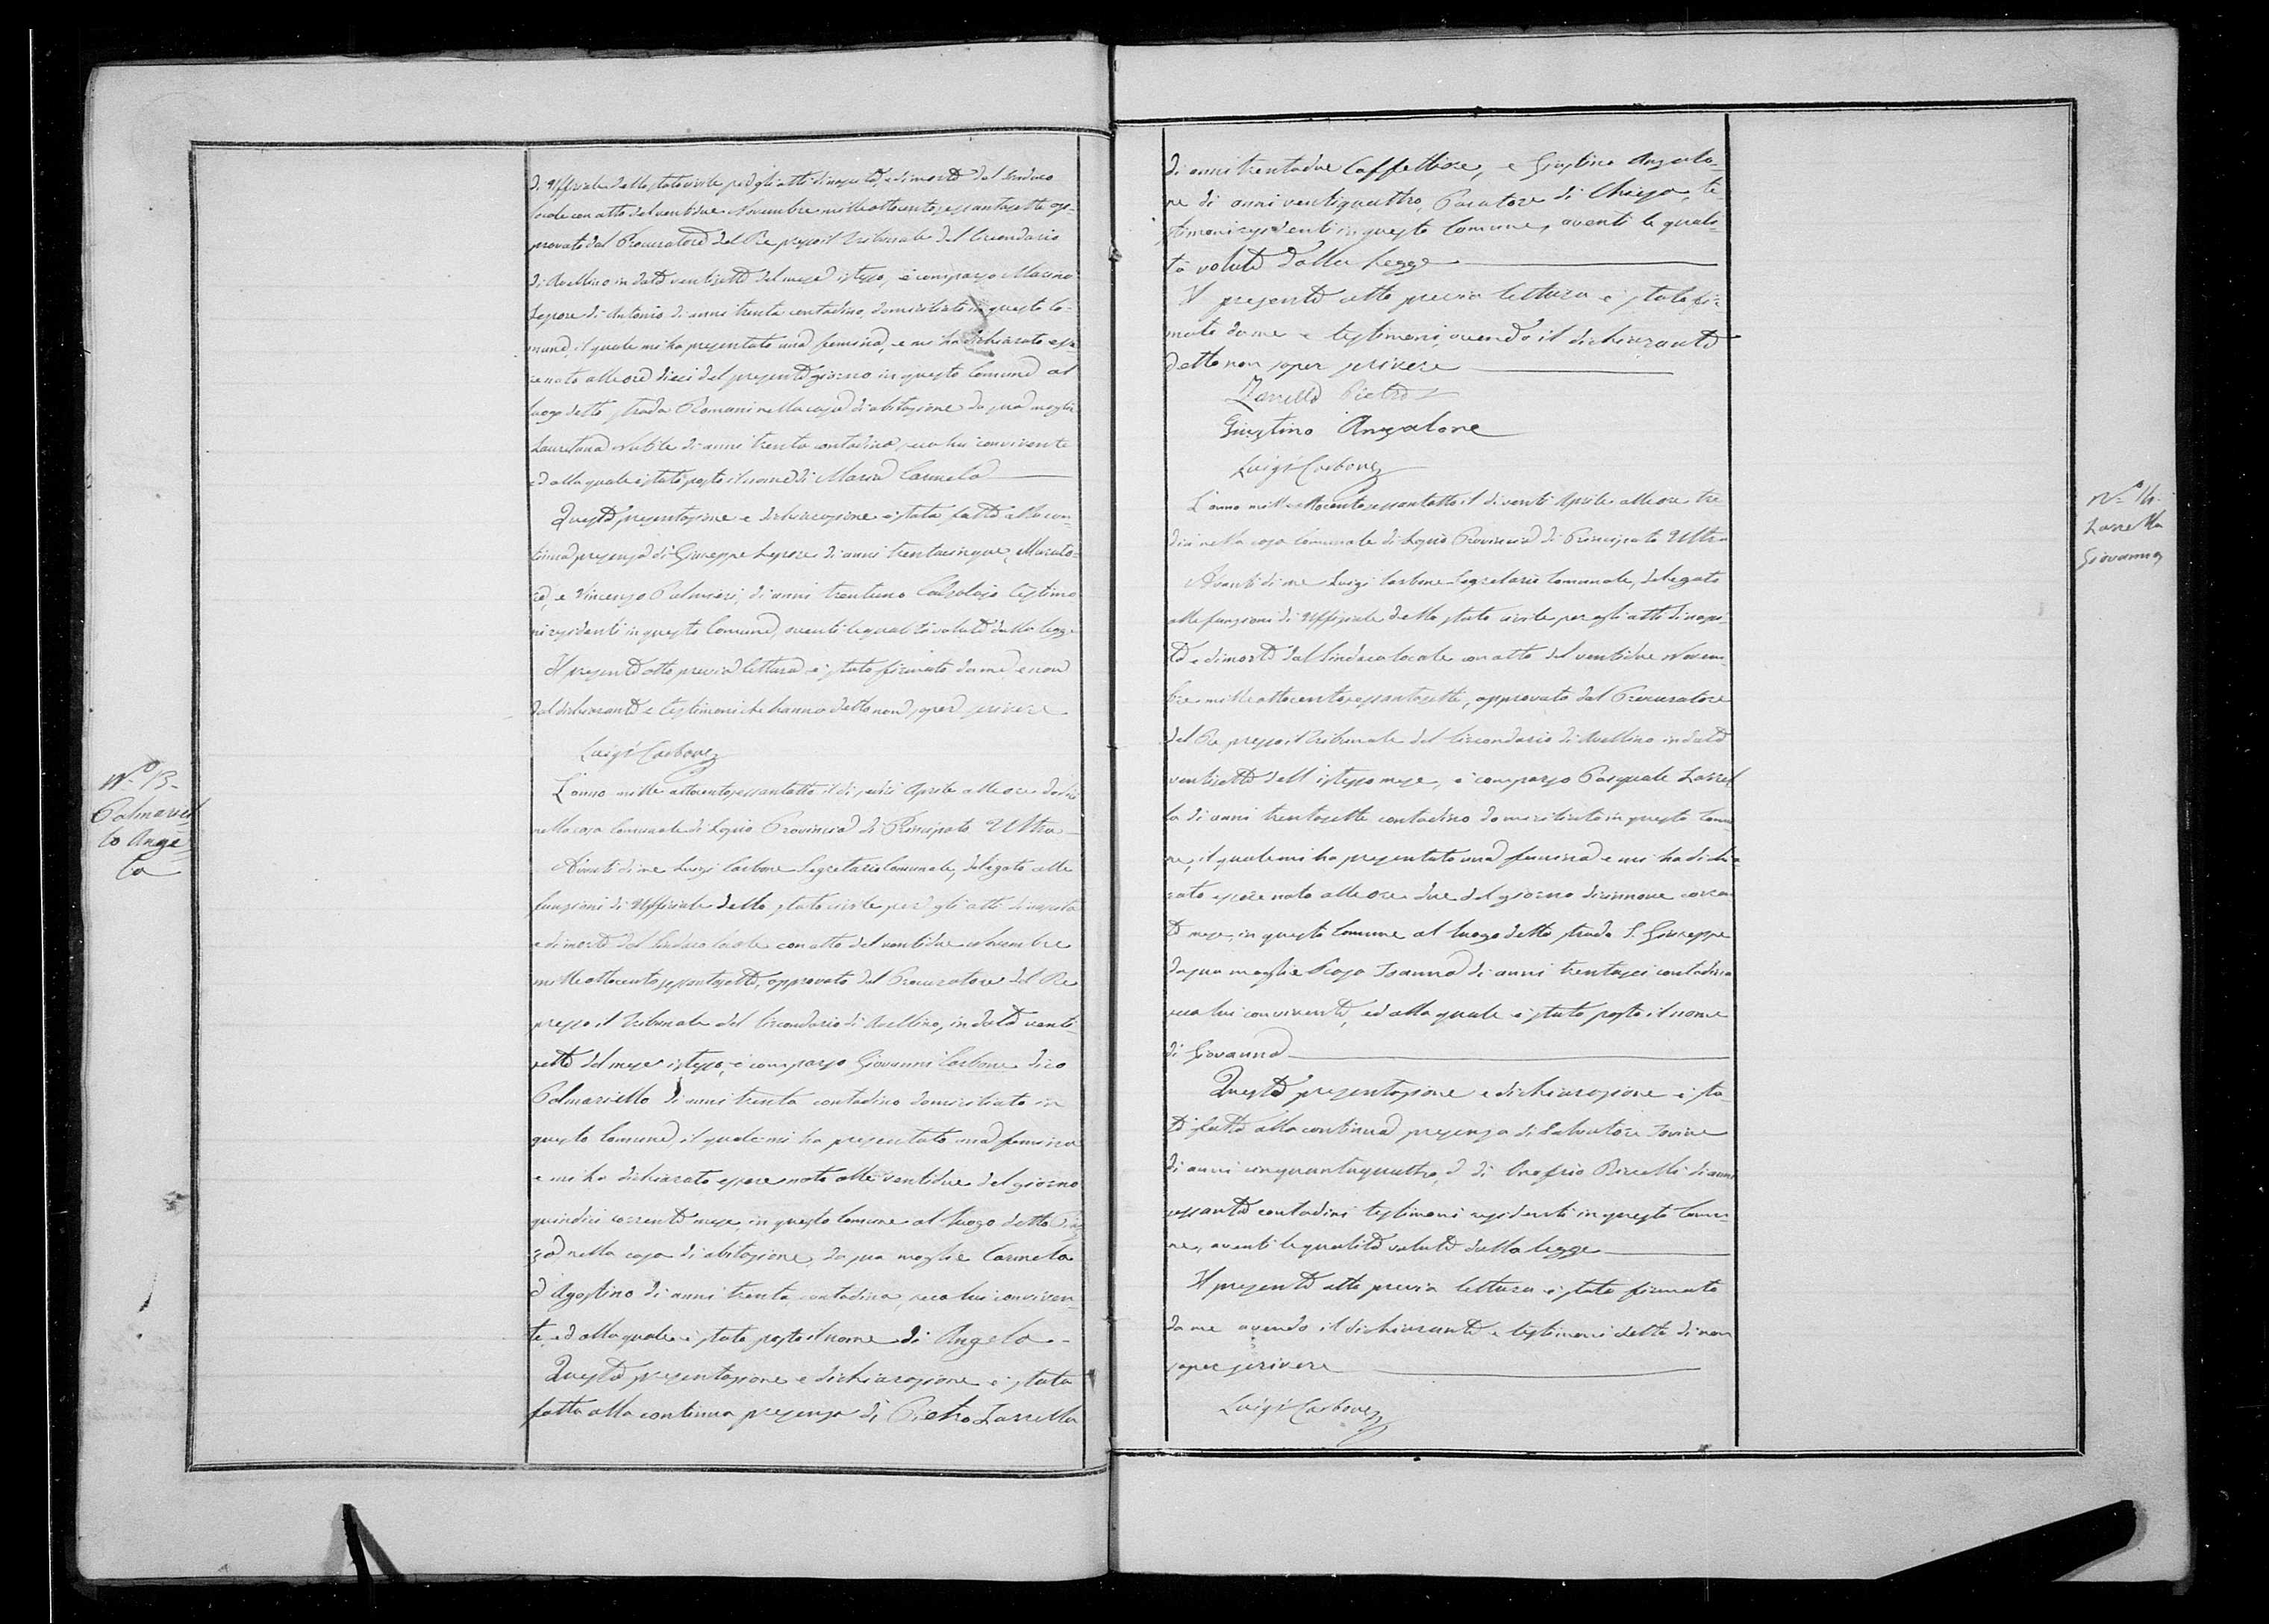 di Uffiziale dello stato civile per gli atti di nascita, e di morte dal Sindaco
locale con atto del ventidue Novembre milleottocentosessantasette ap-
provato dal Procuratore del Re presso il Tribunale del Circondario
di Avellino in data ventisette del mese istesso, è comparso Marino
Lepore di Antonio di anni trenta contadino, domiciliato in questo Co-
mune, il quale mi ha presentato una femina, e mi ha dichiarato esse-
re nato alle ore dieci del presente giorno in questo Comune al
luogo detto strada Romani nella casa di abitazione da sua moglie
Lauretana Nobile di anni trenta contadina, seco lui convivente
ed alla quale è stato posto il nome di Maria Carmela
Questa presentazione e dichiarazione è stata fatta alla con-
tinua presenza di Giuseppe Lepore di anni trentacinque, Murato-
re, e Vincenzo Palmieri, di anni trentuno Calzolajo testimo-
ni residenti in questo Comune, aventi le qualità volute dalla legge
Il presente atto previa lettura è stato firmato da me e non
dal dichiarante e testimoni che hanno detto non saper scrivere
Luigi Carbone
N.º 13.
Palmariel-
lo Ange-
la
L'anno mille ottocentosessantotto il dì sedici Aprile alle ore dodici
nella casa Comunale di Provincia di Principato Ultra
Avanti di me Luigi Carbone Segretario Comunale, delegato alle
funzioni di Uffiziale dello stato civile per gli atti di nascita
e di morte dal Sindaco locale con atto del ventidue Novembre
milleottocentosessantasette, approvato dal Procuratore del Re
presso il Tribunale del Circondario di Avellino, in data venti-
sette del mese istesso, è comparso Giovanni Carbone dico
Palmariello di anni trenta contadino domiciliato in
questo Comune, il quale mi ha presentato una femina
e mi ha dichiarato essere nato alle ventidue del giorno
quindici corrente mese, in questo Comune al luogo detto Piaz
za, nella casa di abitazione, da sua moglie Carmela
d'Agostino di anni trenta contadina, seco lui conviven-
te, ed alla quale è stato posto il nome di Angela
Questa presentazione e dichiarazione è stata
fatta alla continua presenza di Pietro Zarrella
di anni trentadue Caffettiere, e Giustino Anzalo-
ne di anni ventiquattro, Paratore di Chiesa, te
stimoni residenti in questo Comune, aventi le quali-
tà volute dalla legge
Il presente atto previa lettura è stato fir-
mato da me e testimoni, avendo il dichiarante
detto non saper scrivere
Zarrella Pietro
Giustino Anzalone
Luigi Carbone
N.º 14.
Zarrella
Giovanna
L'anno milleottocentosessantotto il dì venti Aprile alle ore tre
dici nella casa Comunale di Provincia di Principato Ultra
Avanti di me Luigi Carbone Segretario Comunale, delegato
alle funzioni di Uffiziale dello stato civile per gli atti di nasci-
ta e di morte dal Sindaco locale con atto del ventidue Novem-
bre milleottocentosessantasette, approvato dal Procuratore
del Re presso il Tribunale del Circondario di Avellino in data
ventisette dell'istesso mese, è comparso Pasquale Zarrel
la di anni trentasette contadino domiciliato in questo Comu
ne, il quale mi ha presentato una femina e mi ha dichia
rato essere nato alle ore due del giorno dicinnove corren
te mese, in questo Comune al luogo detto strada S. Giuseppe
da sua moglie Rosa di anni trentasei contadina
seco lui convivente, ed alla quale è stato posto il nome
di Giovanna
Questa presentazione e dichiarazione è sta-
ta fatta alla continua presenza di Salvatore Iovine
di anni cinquantaquattro, e di Onofrio di anni
sessanta contadini testimoni residenti in questo Comu-
ne, aventi le qualità volute dalla legge
Il presente atto previa lettura è stato firmato
da me avendo il dichiarante e testimoni detto di non
saper scrivere
Luigi Carbone